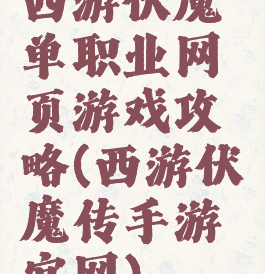 西游伏魔
单职业网
页游戏攻
略(西游伏
魔传手游
官网)